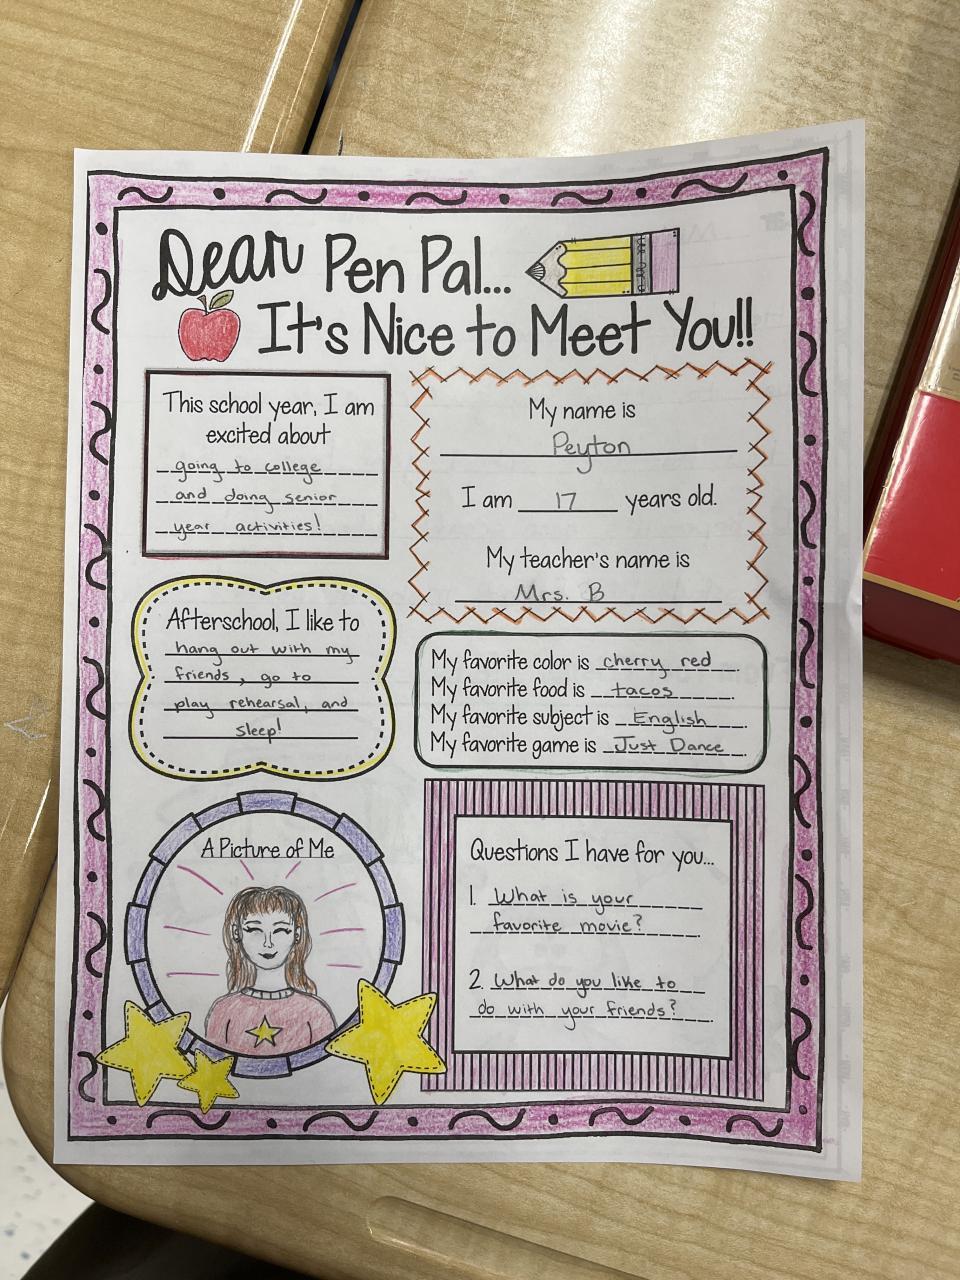 Dear Pen Pal...
It's Nice to Meet You!!
This school year, I am
excited about
going to college
and doing senior
year activities!
My name is
Peyton
I am 17 years old.
My teacher's name is
Mrs. B
Afterschool, I like to
hang out with my
friends, go to
play rehearsal, and
sleep!
My favorite color is cherry red.
My favorite food is tacos.
My favorite subject is English.
My favorite game is Just Dance.
A Picture of Me
Questions I have for you...
1. What is your
favorite movie?
2. What do you like to
do with your friends?